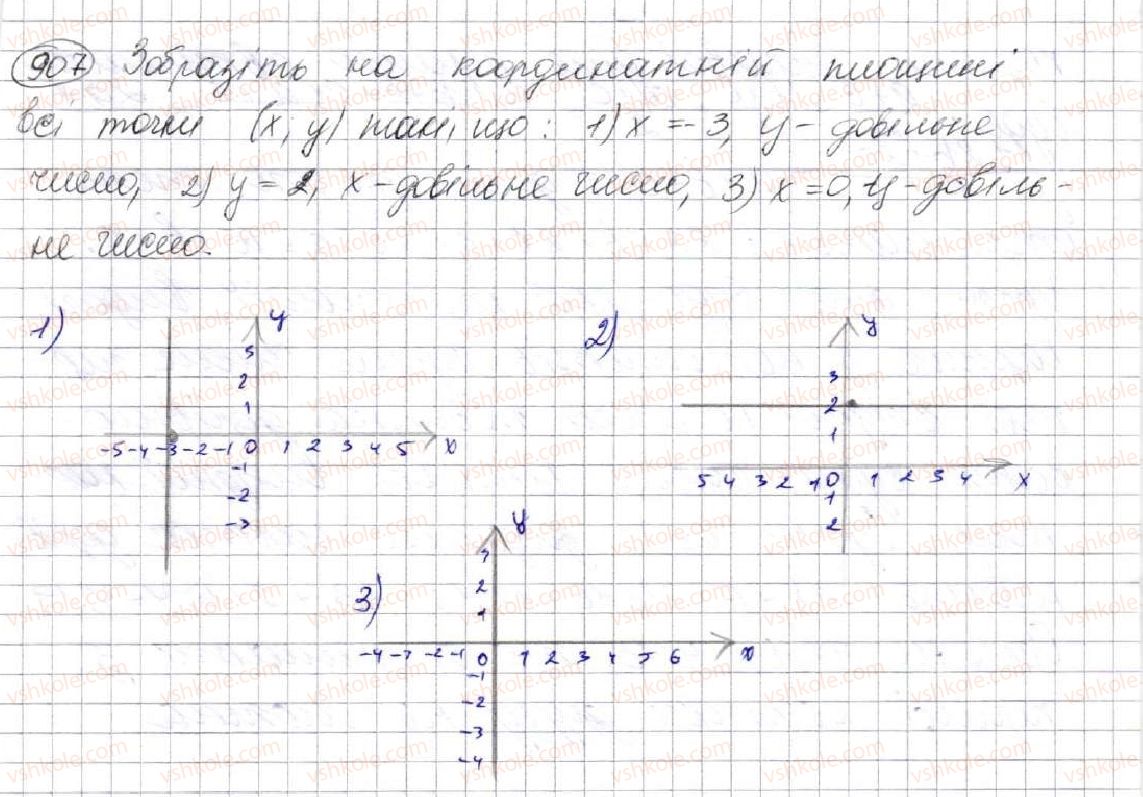 907 Зобразіть на координатній площині
всі точки (x; y) такі, що: 1) x = -3, y - довільне
число, 2) y = 2, x - довільне число, 3) x = 0, y - довіль-
не число.
1) y
3
2
1
-5 -4 -3 -2 -1 0 1 2 3 4 5 x
-1
-2
-3
2) y
3
2
1
5 4 3 2 1 0 1 2 3 4 x
1
2
3) y
3
2
1
-4 -3 -2 -1 0 1 2 3 4 5 6 x
-1
-2
-3
-4
vshkole.com